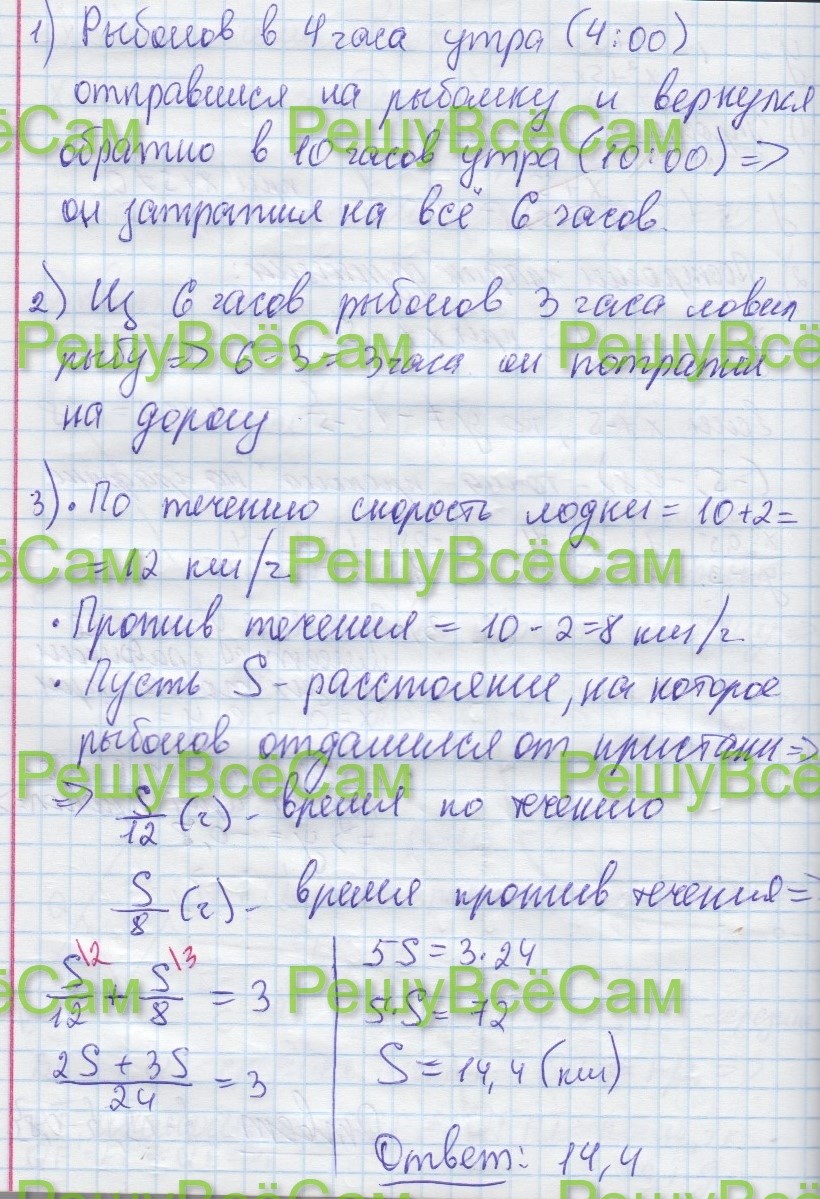 1) Рыболов в 4 часа утра (4:00)
отправился на рыбалку и вернулся
обратно в 10 часов утра (10:00) =>
он затратил на всё 6 часов.
2) Из 6 часов рыболов 3 часа ловил
рыбу => 6 - 3 = 3 часа он потратил
на дорогу
3) • По течению скорость лодки = 10+2=
= 12 км/ч.
• Против течения = 10 - 2 = 8 км/ч.
• Пусть S - расстояние, на которое
рыболов отдалился от пристани =>
=> S/12 (ч) - время по течению
S/8 (ч) - время против течения =>
S\2/12 + S\3/8 = 3
2S + 3S/24 = 3
5S = 3·24
5·S = 72
S = 14,4 (км)
Ответ: 14,4
ёСам РешуВсёСам
РешуВсёСам РешуВсё
ёСам РешуВсёСам
РешуВсёСам РешуВсё
ёСам РешуВсёСам
РешуВсёСам РешуВсё